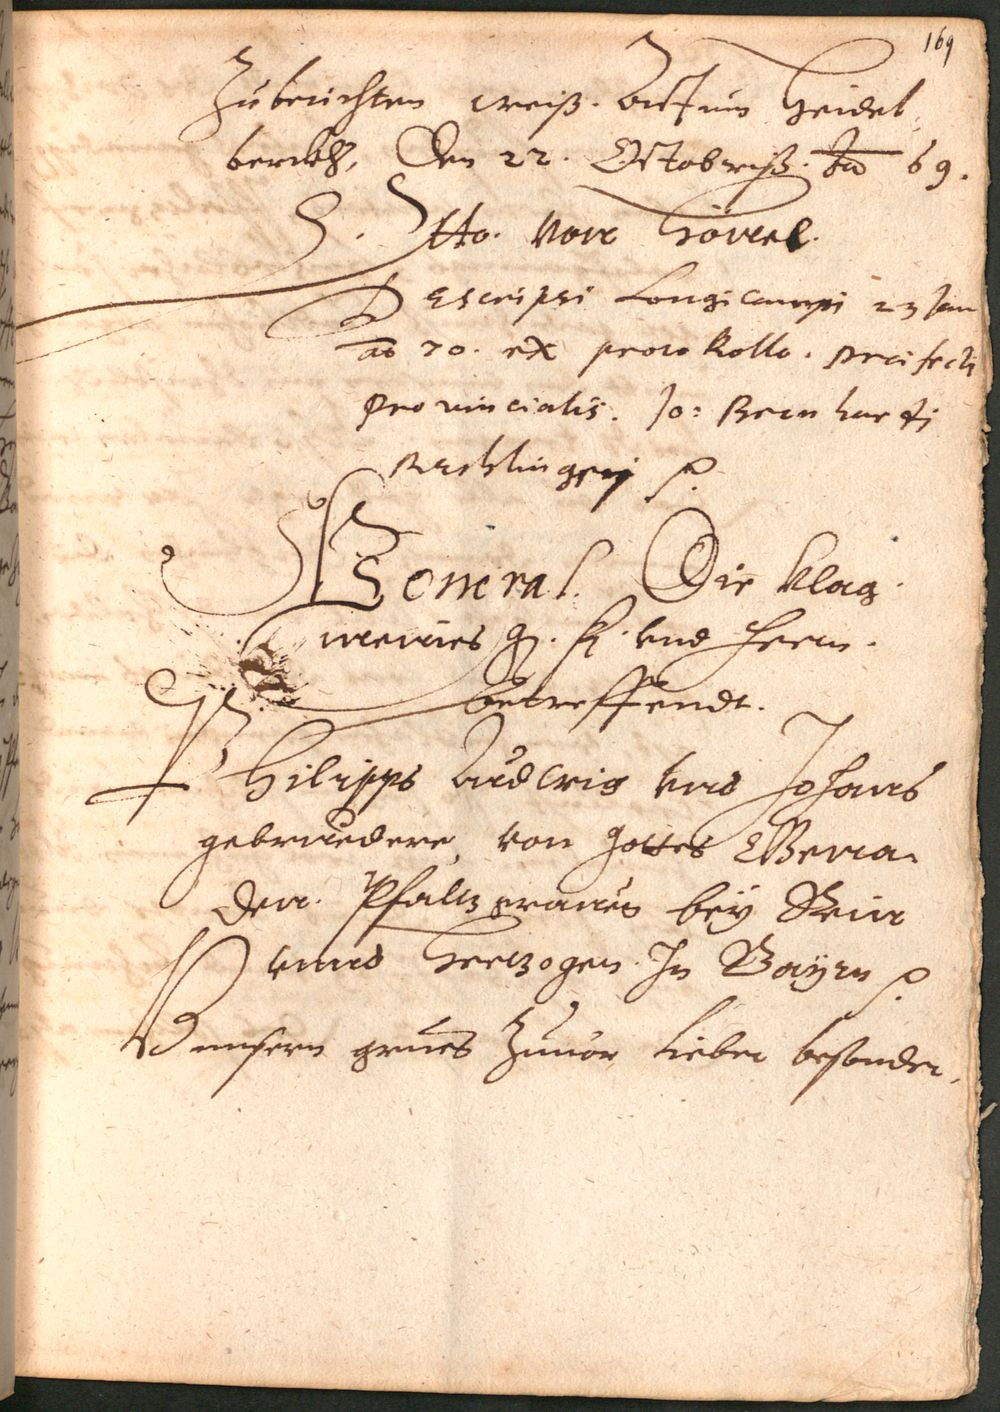 169
Zuberichten weiß. Actum Heidel-
berckh, Den 22. Octobriß. Ao 69.
H. Otto. von Hövel.
Descripsi Longicampi 23 Jan
ao 70. ex protokollo. Praefecti
Provincialis. Jo: Bernharti
General. Die klag
unnsers g. f. und herrn.
betreffendt.
Philipps Ludwig und Johans
gebruedere, von gottes Genna-
den. Pfaltzgraven bey Rein
unnd Hertzogen. In Bayrn p.
unsern grues Zuuor, Lieber besonder,